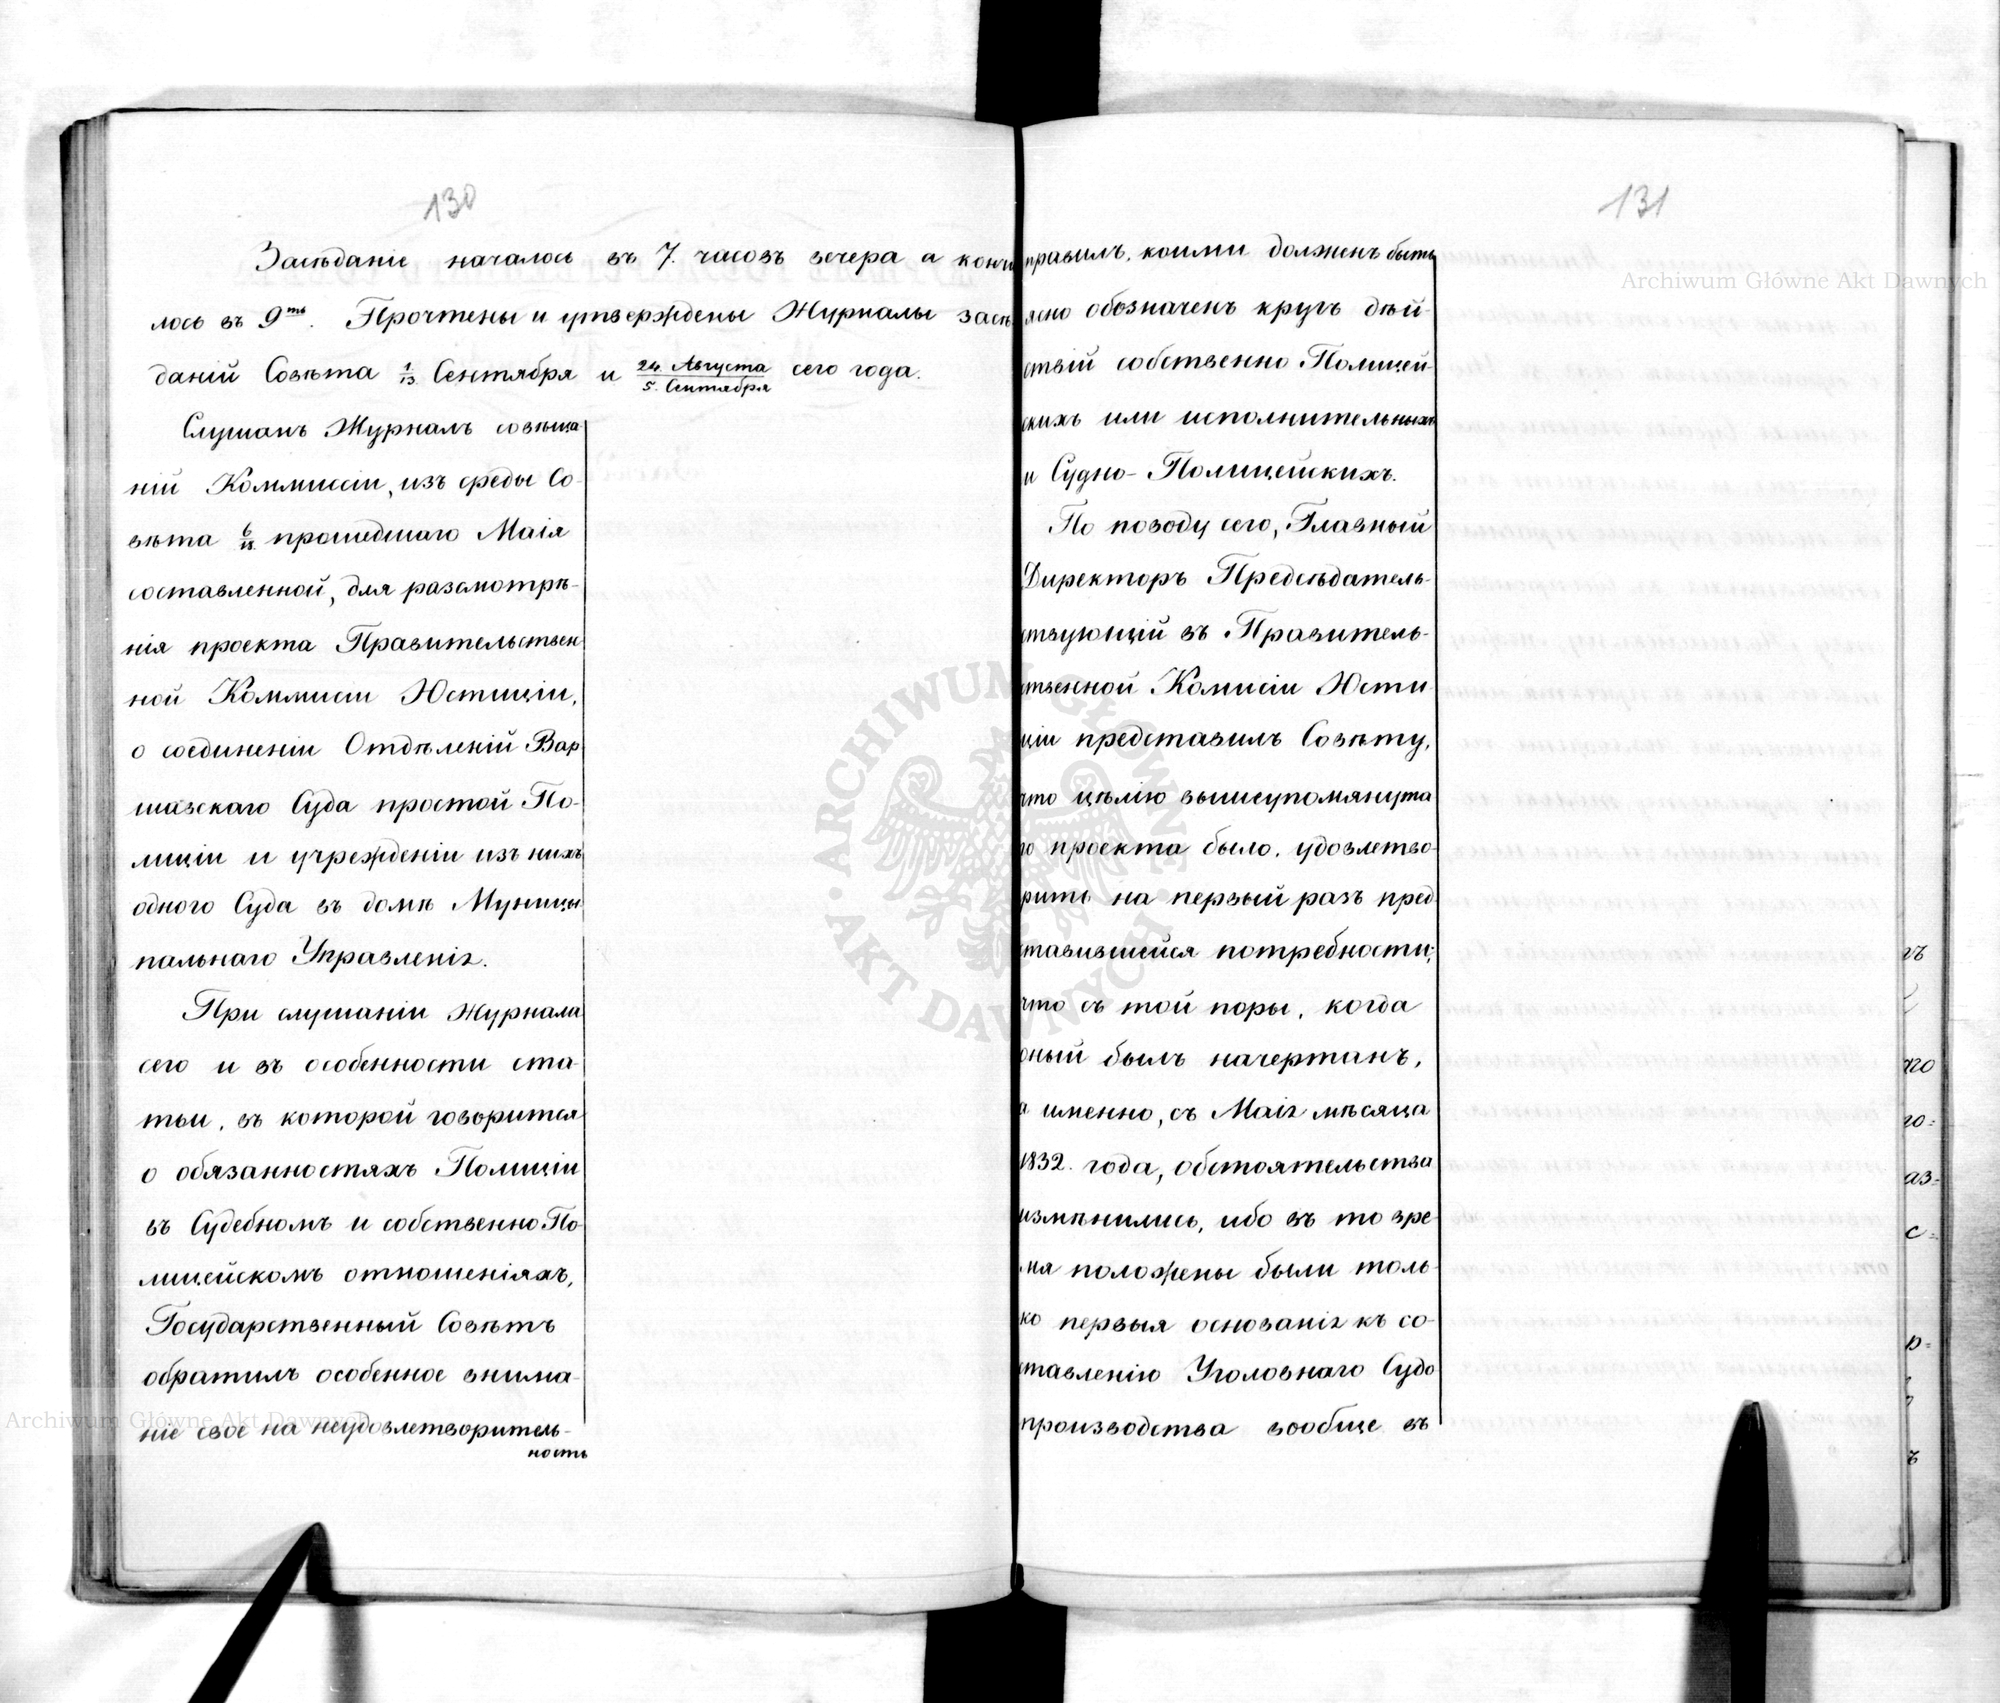 130
Засѣданіе началось въ 7. часовъ вечера а кончи
лось въ 9ть. Прочтены и утверждены Журналы засѣ
даній Совѣта 1/13 Сентября и 24 Августа/5. Сентября сего года.
Слушанъ Журналъ совѣща
ній Коммиссіи, изъ среды Со-
вѣта 6/18 прошедшаго Маія
составленной, для разсмотрѣ-
нія проекта Правительствен
ной Коммисіи Юстиціи,
о соединеніи Отдѣленій Вар
шавскаго Суда простой По-
лиціи и учрежденіи изъ нихъ
одного Суда въ домѣ Муници
пальнаго Управленія.
При слушаніи Журнала
сего и въ особенности ста-
тьи, въ которой говорится
о обязанностяхъ Полиціи
въ Судебномъ и собственно По-
лицейскомъ отношеніяхъ,
Государственный Совѣтъ
обратилъ особенное внима-
ніе свое на неудовлетворитель-
ность
131
правилъ, коими долженъ быть
ясно обозначенъ кругъ дѣй-
ствій собственно Полицей-
скихъ или исполнительныхъ
и Судно-Полицейскихъ.
По поводу сего, Главный
Директоръ Предсѣдатель-
ствующій въ Правитель-
ственной Комисіи Юсти
ціи представилъ Совѣту,
что цѣлію вышеупомянута
го проекта было, удовлетво-
рить на первый разъ пред
ставившейся потребности;
что съ той поры, когда
оный былъ начертанъ,
а именно, съ Маія мѣсяца
1832. года, обстоятельства
измѣнились, ибо въ то вре-
мя положены были толь-
ко первыя основанія къ со-
ставленію Уголовнаго Судо
производства вообще въ
Archiwum Główne Akt Dawnych
Archiwum Główne Akt Dawnych
ARCHIWUM GŁÓWNE · AKT DAWNYCH ·